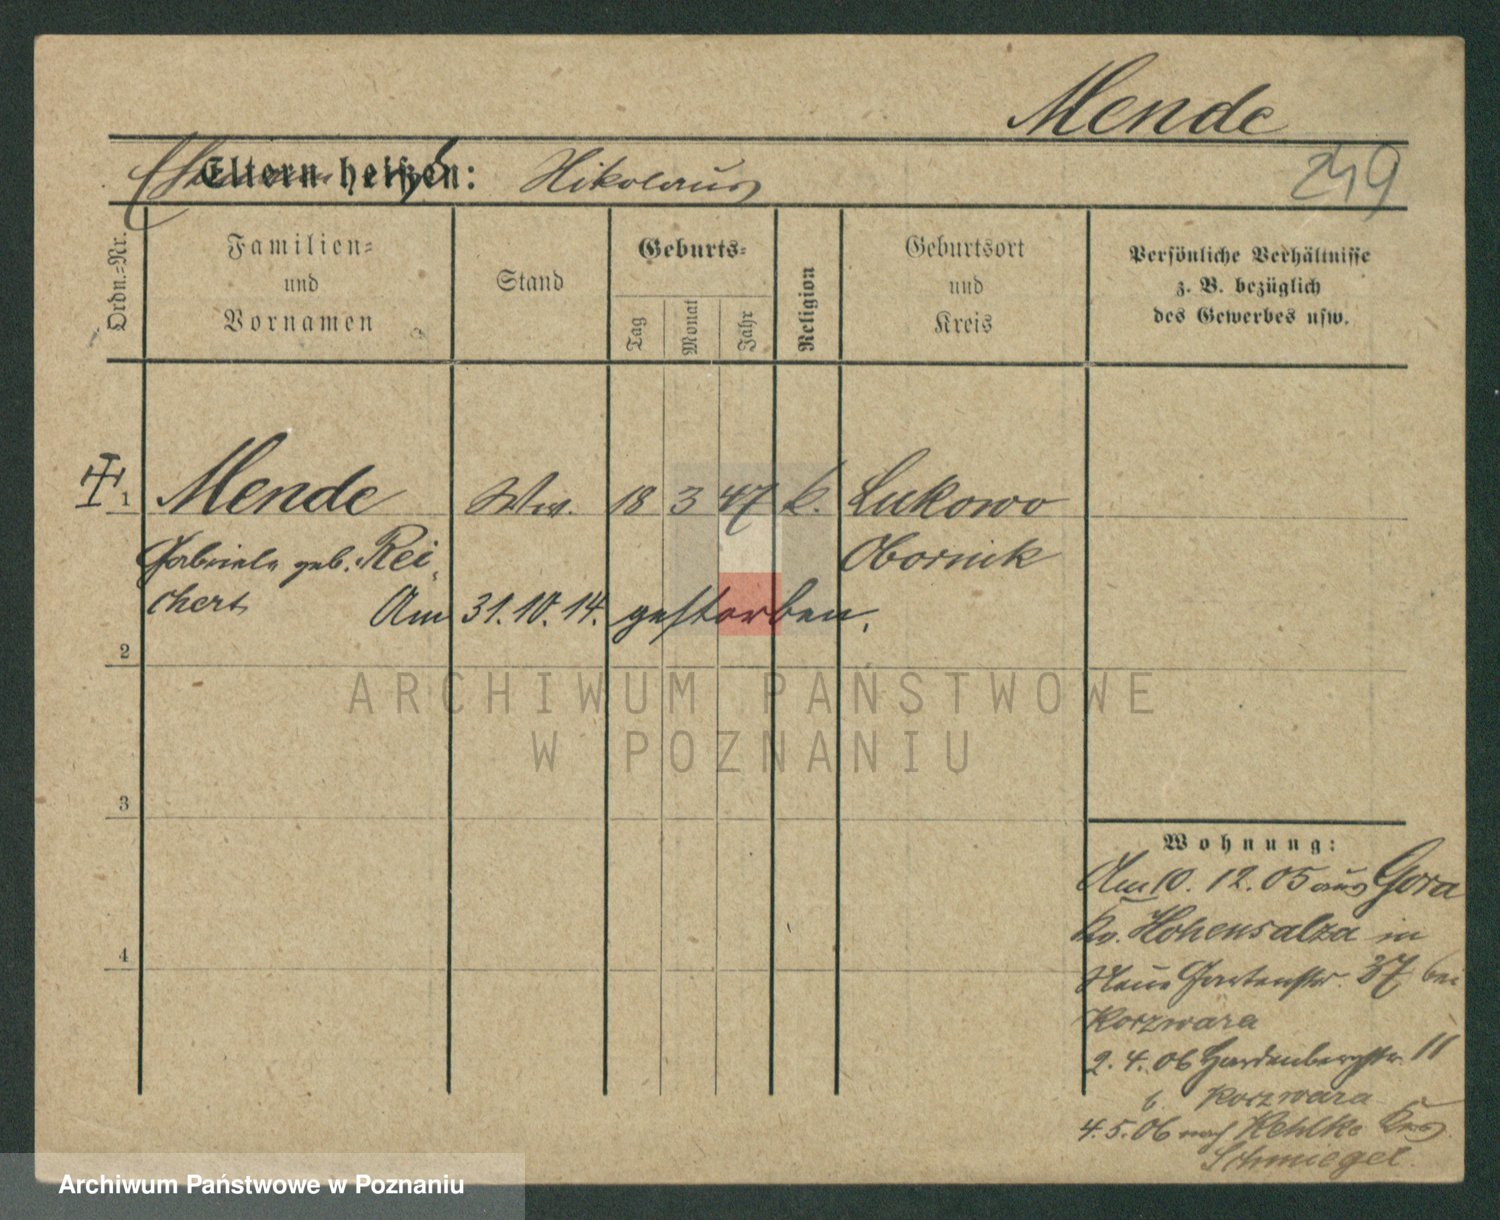 Mende
Eltern heißen: Nikolaus
249
Ordn.-Nr.
Familien-
und
Vornamen
Stand
Geburts-
Tag
Monat
Jahr
Religion
Geburtsort
und
Kreis
Persönliche Verhältnisse
z. B. bezüglich
des Gewerbes usw.
1 Mende Ww. 18 3 47 k. Lukowo
Gabriele geb. Rei- Obornik
chert Am 31.10.14. gestorben.
2
3
4
Wohnung:
Am 10. 12. 05 aus Gora
Kr. Hohensalza in
Neue Gartenstr. 37 bei
Korzwara
2.4.06 Hardenbergstr. 11
b. Korzwara
4.5.06 nach Kreis
Schmiegel
ARCHIWUM PAŃSTWOWE
W POZNANIU
Archiwum Państwowe w Poznaniu